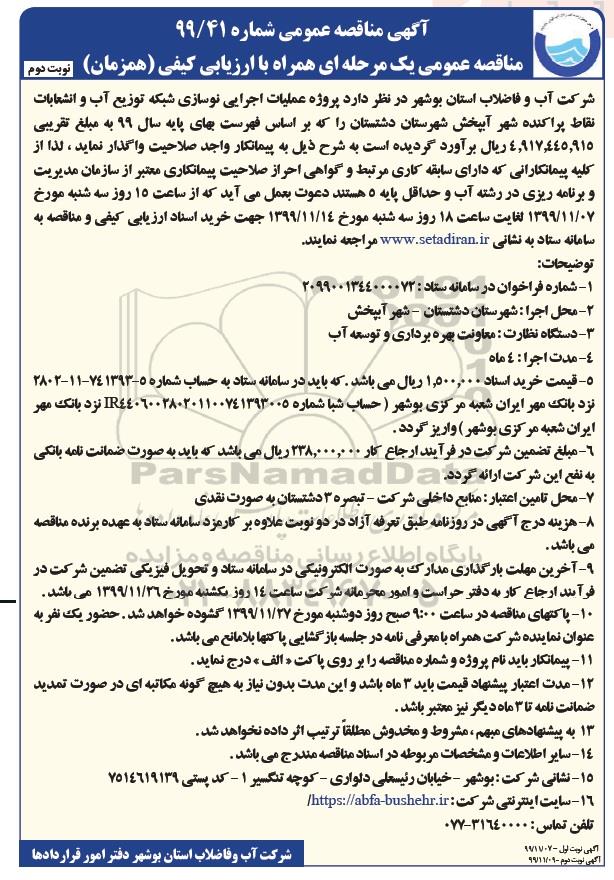 آگهی مناقصه عمومی شماره ۹۹/۴۱
مناقصه عمومی یک مرحله ای همراه با ارزیابی کیفی (همزمان)
نوبت دوم
شرکت آب و فاضلاب استان بوشهر در نظر دارد پروژه عملیات اجرایی نوسازی شبکه توزیع آب و انشعابات
نقاط پراکنده شهر آبپخش شهرستان دشتستان را که بر اساس فهرست بهای پایه سال ۹۹ به مبلغ تقریبی
۴,۹۱۷,۴۴۵,۹۱۵ ریال برآورد گردیده است به شرح ذیل به پیمانکار واجد صلاحیت واگذار نماید ، لذا از
کلیه پیمانکارانی که دارای سابقه کاری مرتبط و گواهی احراز صلاحیت پیمانکاری معتبر از سازمان مدیریت
و برنامه ریزی در رشته آب و حداقل پایه ۵ هستند دعوت بعمل می آید که از ساعت ۱۵ روز سه شنبه مورخ
۱۳۹۹/۱۱/۰۷ لغایت ساعت ۱۸ روز سه شنبه مورخ ۱۳۹۹/۱۱/۱۴ جهت خرید اسناد ارزیابی کیفی و مناقصه به
سامانه ستاد به نشانی www.setadiran.ir مراجعه نمایند.
توضیحات:
۱- شماره فراخوان در سامانه ستاد : ۲۰۹۹۰۰۱۳۴۴۰۰۰۰۷۲
۲- محل اجرا : شهرستان دشتستان - شهر آبپخش
۳- دستگاه نظارت : معاونت بهره برداری و توسعه آب
۴- مدت اجرا : ۴ ماه
۵- قیمت خرید اسناد ۱,۵۰۰,۰۰۰ ریال می باشد . که باید در سامانه ستاد به حساب شماره ۵-۷۴۱۳۹۳-۱۱-۲۸۰۲
نزد بانک مهر ایران شعبه مرکزی بوشهر ( حساب شبا شماره IR۴۴۰۶۰۰۲۸۰۲۰۱۱۰۰۷۴۱۳۹۳۰۰۵ نزد بانک مهر
ایران شعبه مرکزی بوشهر ) واریز گردد .
۶- مبلغ تضمین شرکت در فرآیند ارجاع کار ۲۳۸,۰۰۰,۰۰۰ ریال می باشد که باید به صورت ضمانت نامه بانکی
به نفع این شرکت ارائه گردد.
۷- محل تامین اعتبار : منابع داخلی شرکت - تبصره ۳ دشتستان به صورت نقدی
۸- هزینه درج آگهی در روزنامه طبق تعرفه آزاد در دو نوبت علاوه بر کارمزد سامانه ستاد به عهده برنده مناقصه
می باشد .
۹- آخرین مهلت بارگذاری مدارک به صورت الکترونیکی در سامانه ستاد و تحویل فیزیکی تضمین شرکت در
فرآیند ارجاع کار به دفتر حراست و امور محرمانه شرکت ساعت ۱۴ روز یکشنبه مورخ ۱۳۹۹/۱۱/۲۶ می باشد .
۱۰- پاکتهای مناقصه در ساعت ۹:۰۰ صبح روز دوشنبه مورخ ۱۳۹۹/۱۱/۲۷ گشوده خواهد شد . حضور یک نفر به
عنوان نماینده شرکت همراه با معرفی نامه در جلسه بازگشایی پاکتها بلامانع می باشد.
۱۱- پیمانکار باید نام پروژه و شماره مناقصه را بر روی پاکت « الف » درج نماید .
۱۲- مدت اعتبار پیشنهاد قیمت باید ۳ ماه باشد و این مدت بدون نیاز به هیچ گونه مکاتبه ای در صورت تمدید
ضمانت نامه تا ۳ ماه دیگر نیز معتبر باشد .
۱۳ به پیشنهادهای مبهم ، مشروط و مخدوش مطلقاً ترتیب اثر داده نخواهد شد .
۱۴- سایر اطلاعات و مشخصات مربوطه در اسناد مناقصه مندرج می باشد .
۱۵- نشانی شرکت : بوشهر - خیابان رئیسعلی دلواری - کوچه تنگسیر ۱ - کد پستی ۷۵۱۴۶۱۹۱۳۹
۱۶- سایت اینترنتی شرکت : https://abfa-bushehr.ir/
تلفن تماس : ۳۱۶۴۰۰۰۰-۰۷۷
آگهی نوبت اول : ۹۹/۱۱/۰۷
آگهی نوبت دوم : ۹۹/۱۱/۰۹
شرکت آب وفاضلاب استان بوشهر دفتر امور قراردادها
ParsNamadData
پایگاه اطلاع رسانی مناقصه و مزایده